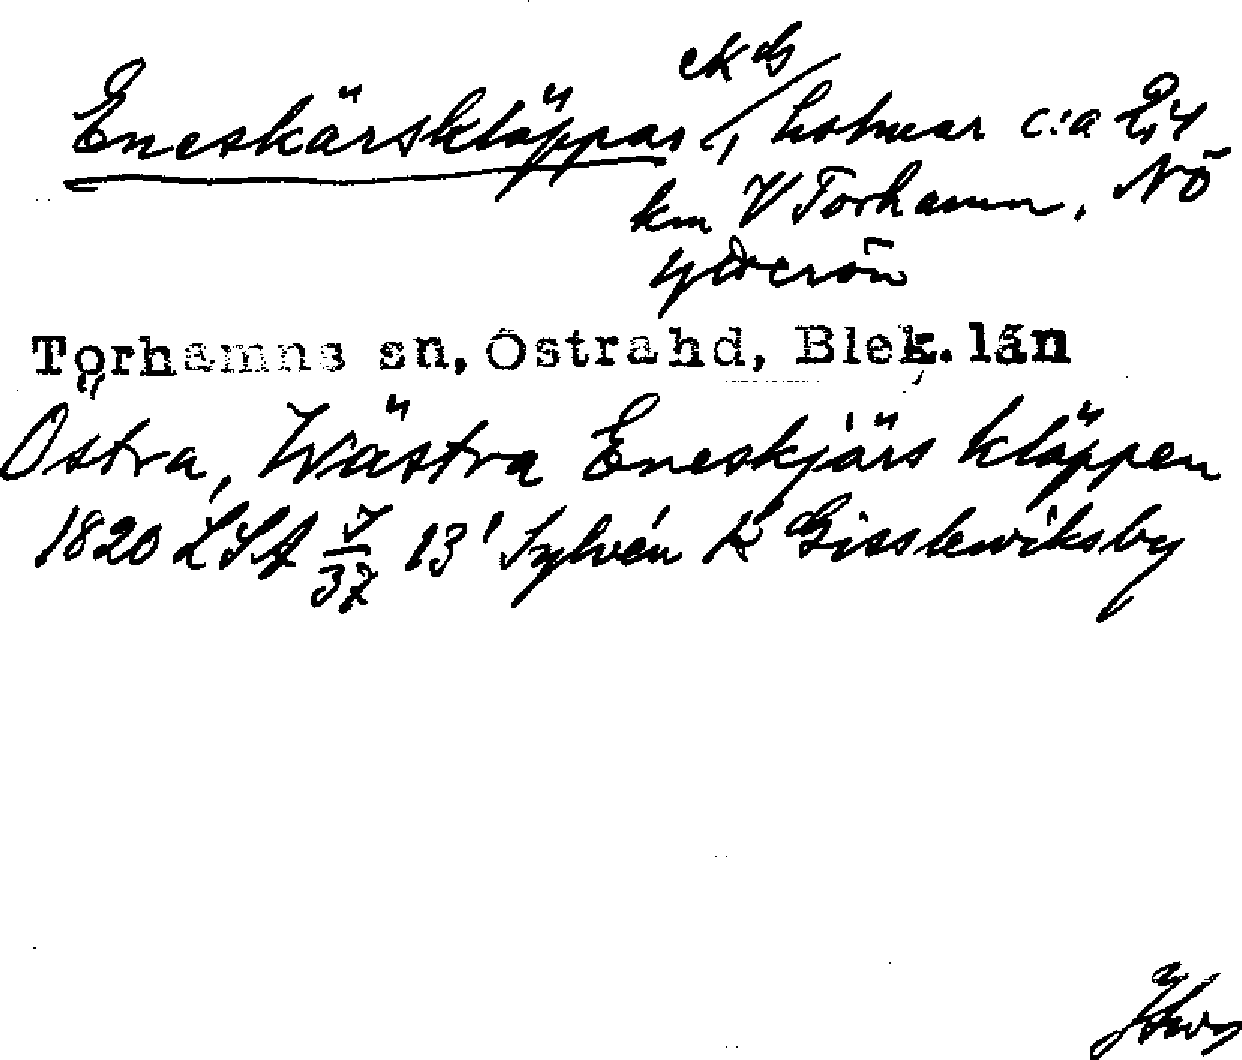 ekbl
Eneskärskläppar, holmar c:a 2,4
km V Torhamn, NÖ
Ytterön
Torhamns sn, Östra hd, Blek. län
Östra, Wästra Eneskjärs kläppen
1820 LSA 7/37 13' Sylvén k Gisslewiksby